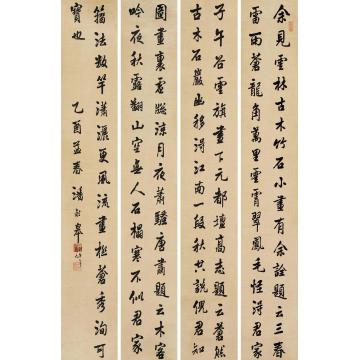 余見雲林古木竹石小畫有余詮題云三春
雷雨蒼龍角萬里雲霄翠鳳毛怪得君家
子午谷雲旗晝下元都壇高志題云蒼然
古木石巖幽移得江南一段秋共說倪君知
圖畫裏虛懸涼月夜蕭騷唐肅題云木客
吟夜秋露翻山空無人石榻寒不似君家
籀法數竿瀟灑更風流畫極蒼秀洵可
寶也 乙酉孟春 潘